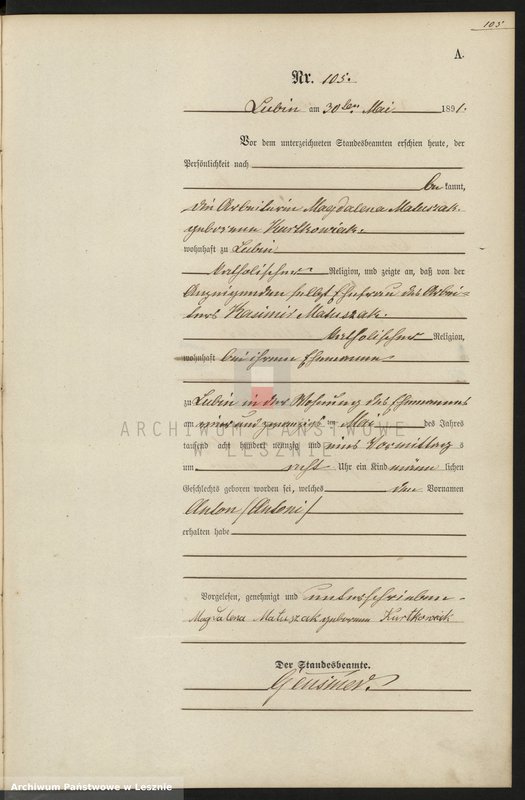 105
A.
Nr. 105.
Lubin am 30ten Mai 1891.
Vor dem unterzeichneten Standesbeamten erschien heute, der
Persönlichkeit nach
be kannt,
die Arbeiterin Magdalena Matuszak
geborene Kurtkowiak
wohnhaft zu Lubin
katholischer Religion, und zeigte an, daß von der
Anzeigenden selbst Ehefrau des Arbei-
ters Kasimir Matuszak
katholischer Religion,
wohnhaft bei ihrem Ehemanne
zu Lubin in der Wohnung des Ehemannes
am einundzwanzigs ten Mai des Jahres
tausend acht hundert neunzig und eins Vormittag s
um acht Uhr ein Kind männ lichen
Geschlechts geboren worden sei, welches den Vornamen
Anton /Antoni/
erhalten habe
Vorgelesen, genehmigt und unterschrieben
Magdalena Matuszak geborene Kurtkowiak
Der Standesbeamte.
ARCHIWUM PAŃSTWOWE
W LESZNIE
Archiwum Państwowe w Lesznie